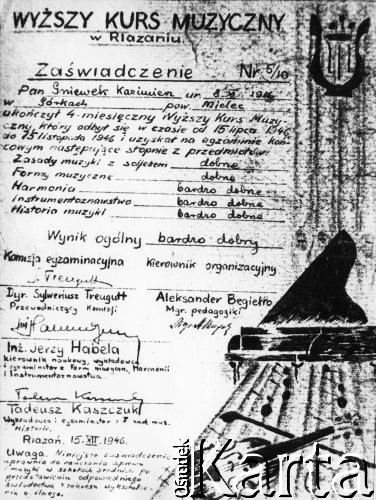 WYŻSZY KURS MUZYCZNY
w Riazaniu
Zaświadczenie Nr 5/10
Pan Gniewek Kazimierz ur. 8.XI 1916
w Górkach pow. Mielec
ukończył 4-miesięczny Wyższy Kurs Muzy-
czny, który odbył się w czasie od 15 lipca 1946
do 15 listopada 1946 i uzyskał na egzaminie koń-
cowym następujące stopnie z przedmiotów:
Zasady muzyki z solfeżem dobre
Formy muzyczne dobre
Harmonia bardzo dobre
Instrumentoznawstwo bardzo dobre
Historia muzyki bardzo dobre
Wynik ogólny bardzo dobry
Komisja egzaminacyjna Kierownik organizacyjny
S. Treugutt
Dyr. Sylweriusz Treugutt Aleksander Begiełło
Przewodniczący Komisji Mgr. pedagogiki
Inż. Jerzy Habela
kierownik naukowy, wykładowca
i egzaminator z form muzycznych, Harmonii
i Instrumentoznawstwa
Tadeusz Kaszczuk
Wykładowca i egzaminator z zasad muz.
Historii m.
Riazań. 15.XII 1946.
Uwaga. Niniejsze zaświadczenie
uprawnia do nauczania śpiewu
i muzyki w szkołach średnich po
przedstawieniu odpowiedniego
świadectwa z zakresu wykształce-
nia ogólnego.
Ośrodek
Karta